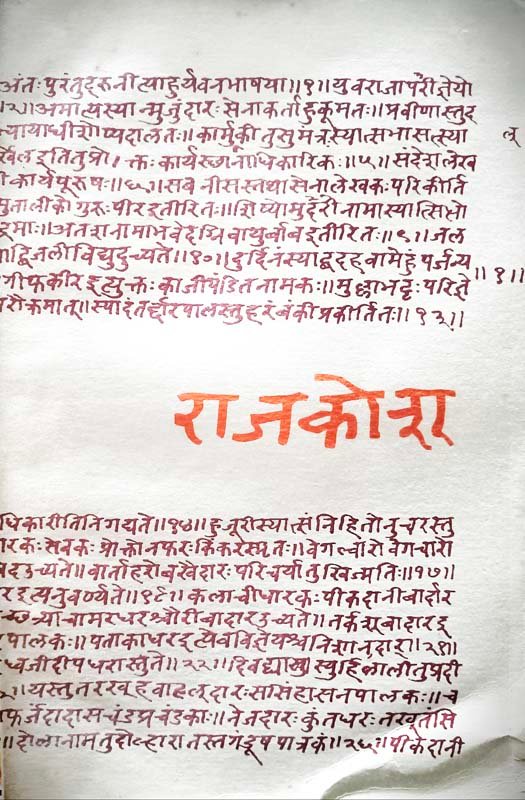 अंतःपुरंतुदरूनीत्याहुर्यवनभाषया॥१॥युवराजापरीज्ञेयो
॥२॥अमात्यस्यान्मुजुंदारःसेनाकर्ताहुकूमतः॥प्रवीणास्तुद
न्यायाधीशोप्यदालतः॥कार्मुकीतुसुमंत्रस्यात्सभासत्स्या
लृ
इतितुप्रोक्तःकार्यस्थानाधिकारिकः॥५॥संदेशलेख
कार्यपूरुषः॥६॥सबनीसस्तथासेनालेखकःपरिकीर्ति
गुरूःपीरइतीरितः॥शिष्योमुर्दरीनामास्यात्सिधो
नामाभवेद्यथिवाथुर्बोबइतीरितः॥९॥जल
द्विजलीविद्युदुच्यते॥१०॥दुर्दिनंस्याद्वदहवामेहुंपर्जन्य
॥१॥
फकीरइत्युक्तःकाजीपंडितनामकः॥मुल्लाभट्टःपरिज्ञे
क्रमात्॥स्यादंतर्द्वारपालस्तुहरंबंकीप्रकीर्तितः॥१३॥
राजकोश
धिकारीतिनिगद्यते॥१४॥हुजूरीस्यात्संनिहितोनुचरस्तु
रकःसेवकःप्रोक्तोनफरःकिंकरस्मृतः॥वेगल्चारोवेगचारो
दउच्यते॥वार्ताहरोबखैदारःपरिचर्यातुखिज्मति॥१७॥
इत्यनुवर्ण्यते॥१८॥कलाचीधारकःपीकदानीबार्दार
चामरधरश्चौरीबार्दारउच्यते॥तर्कशबार्दारइ
पालकः॥पताकाधरइत्येवविज्ञेयश्चनिशानदारः॥२१॥
ध्वजीदीपधरास्तुते॥२२॥दिवट्याख्यास्युर्हिलालीतुप्रदी
॥यस्तुतरखहवाललदारःससिंहासनपालकः॥च
फर्जंदादासचंडप्रचंडकाः॥नेजदारःकुंतधरःतख्तंसि
॥दोलानामतुदोल्हारातस्तगंडूषपात्रकं॥२६॥पीकदानी